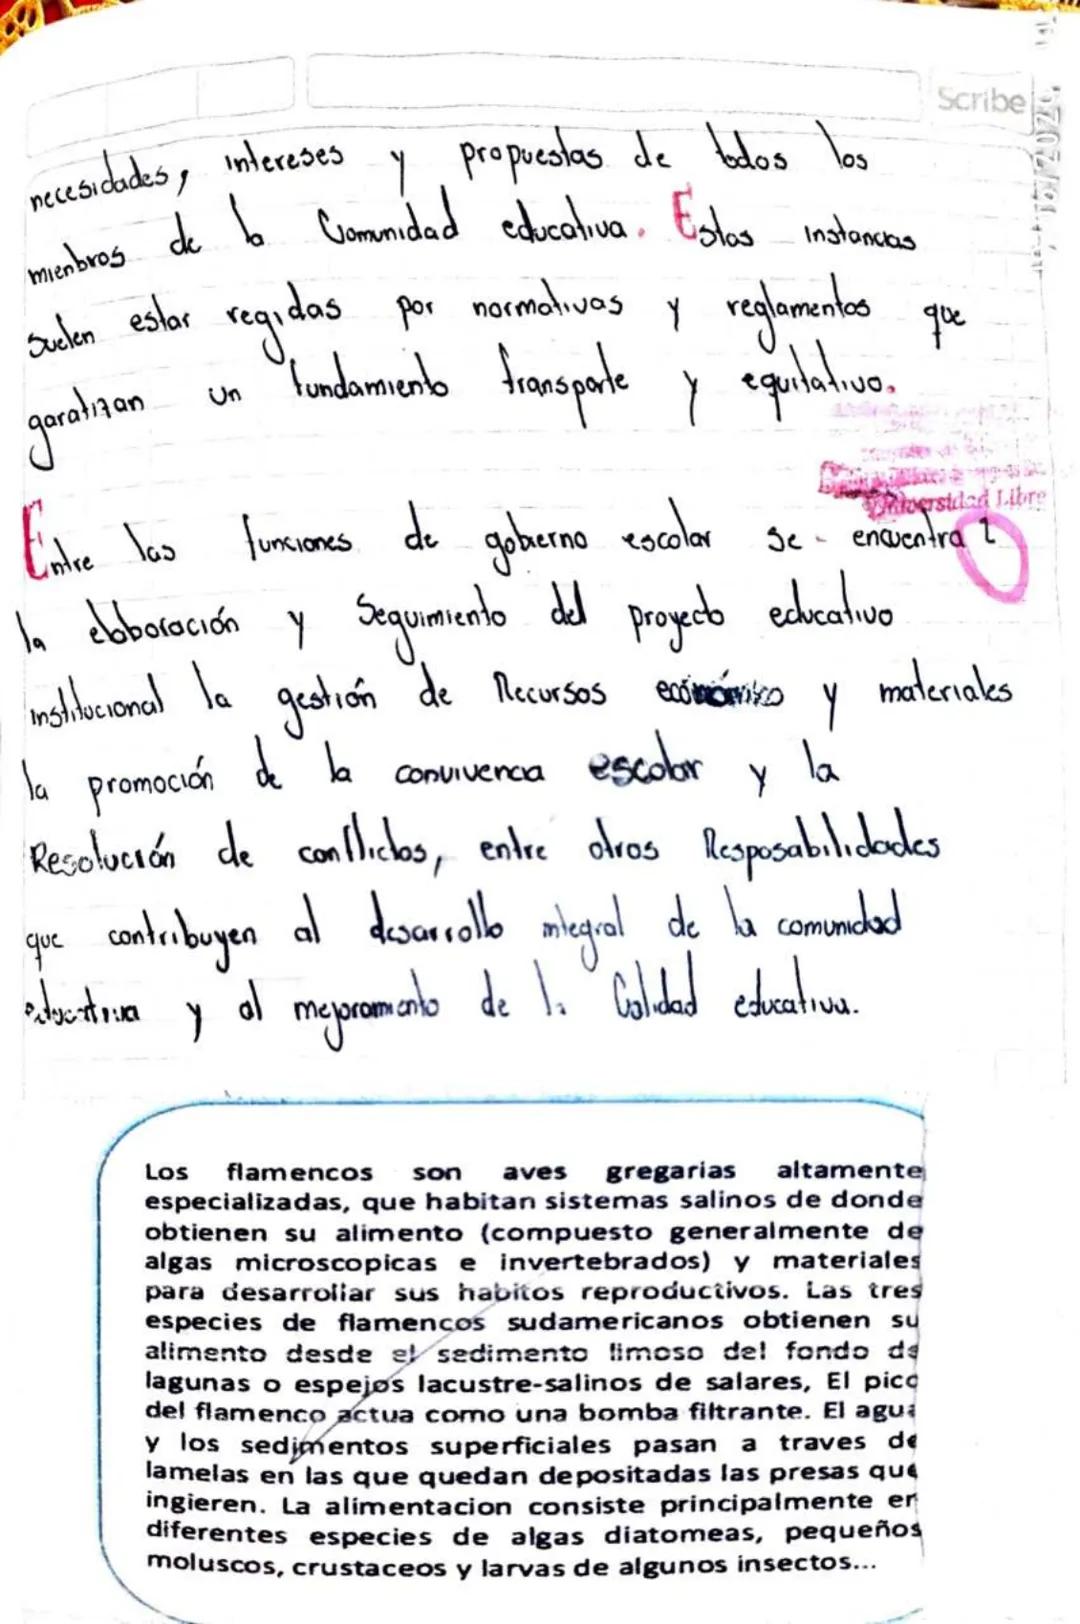 Scribe
necesidades, intereses y propuestas de todos los
mienbros de la Comunidad educativa. Estas instancias
Suelen estar regidas por normativas y reglamentos que
garatizan un fundamiento transparte y equitativo.
Universidad Libre
Entre las funciones de gobierno escolar se encuentra
la elaboración y Seguimiento del proyecto educativo
institucional la gestión de Recursos económico y materiales
la promoción de la convivencia escolar y la
Resolución de conflictos, entre otros Resposabilidades
que contribuyen al desarrollo integral de la comunidad
educativa y al mejoramiento de la Calidad educativa.
Los flamencos son aves gregarias altamente
especializadas, que habitan sistemas salinos de donde
obtienen su alimento (compuesto generalmente de
algas microscopicas e invertebrados) y materiales
para desarrollar sus habitos reproductivos. Las tres
especies de flamencos sudamericanos obtienen su
alimento desde el sedimento limoso del fondo de
lagunas o espejos lacustre-salinos de salares, El pico
del flamenco actua como una bomba filtrante. El agua
y los sedimentos superficiales pasan a traves de
lamelas en las que quedan depositadas las presas que
ingieren. La alimentacion consiste principalmente en
diferentes especies de algas diatomeas, pequeños
moluscos, crustaceos y larvas de algunos insectos...